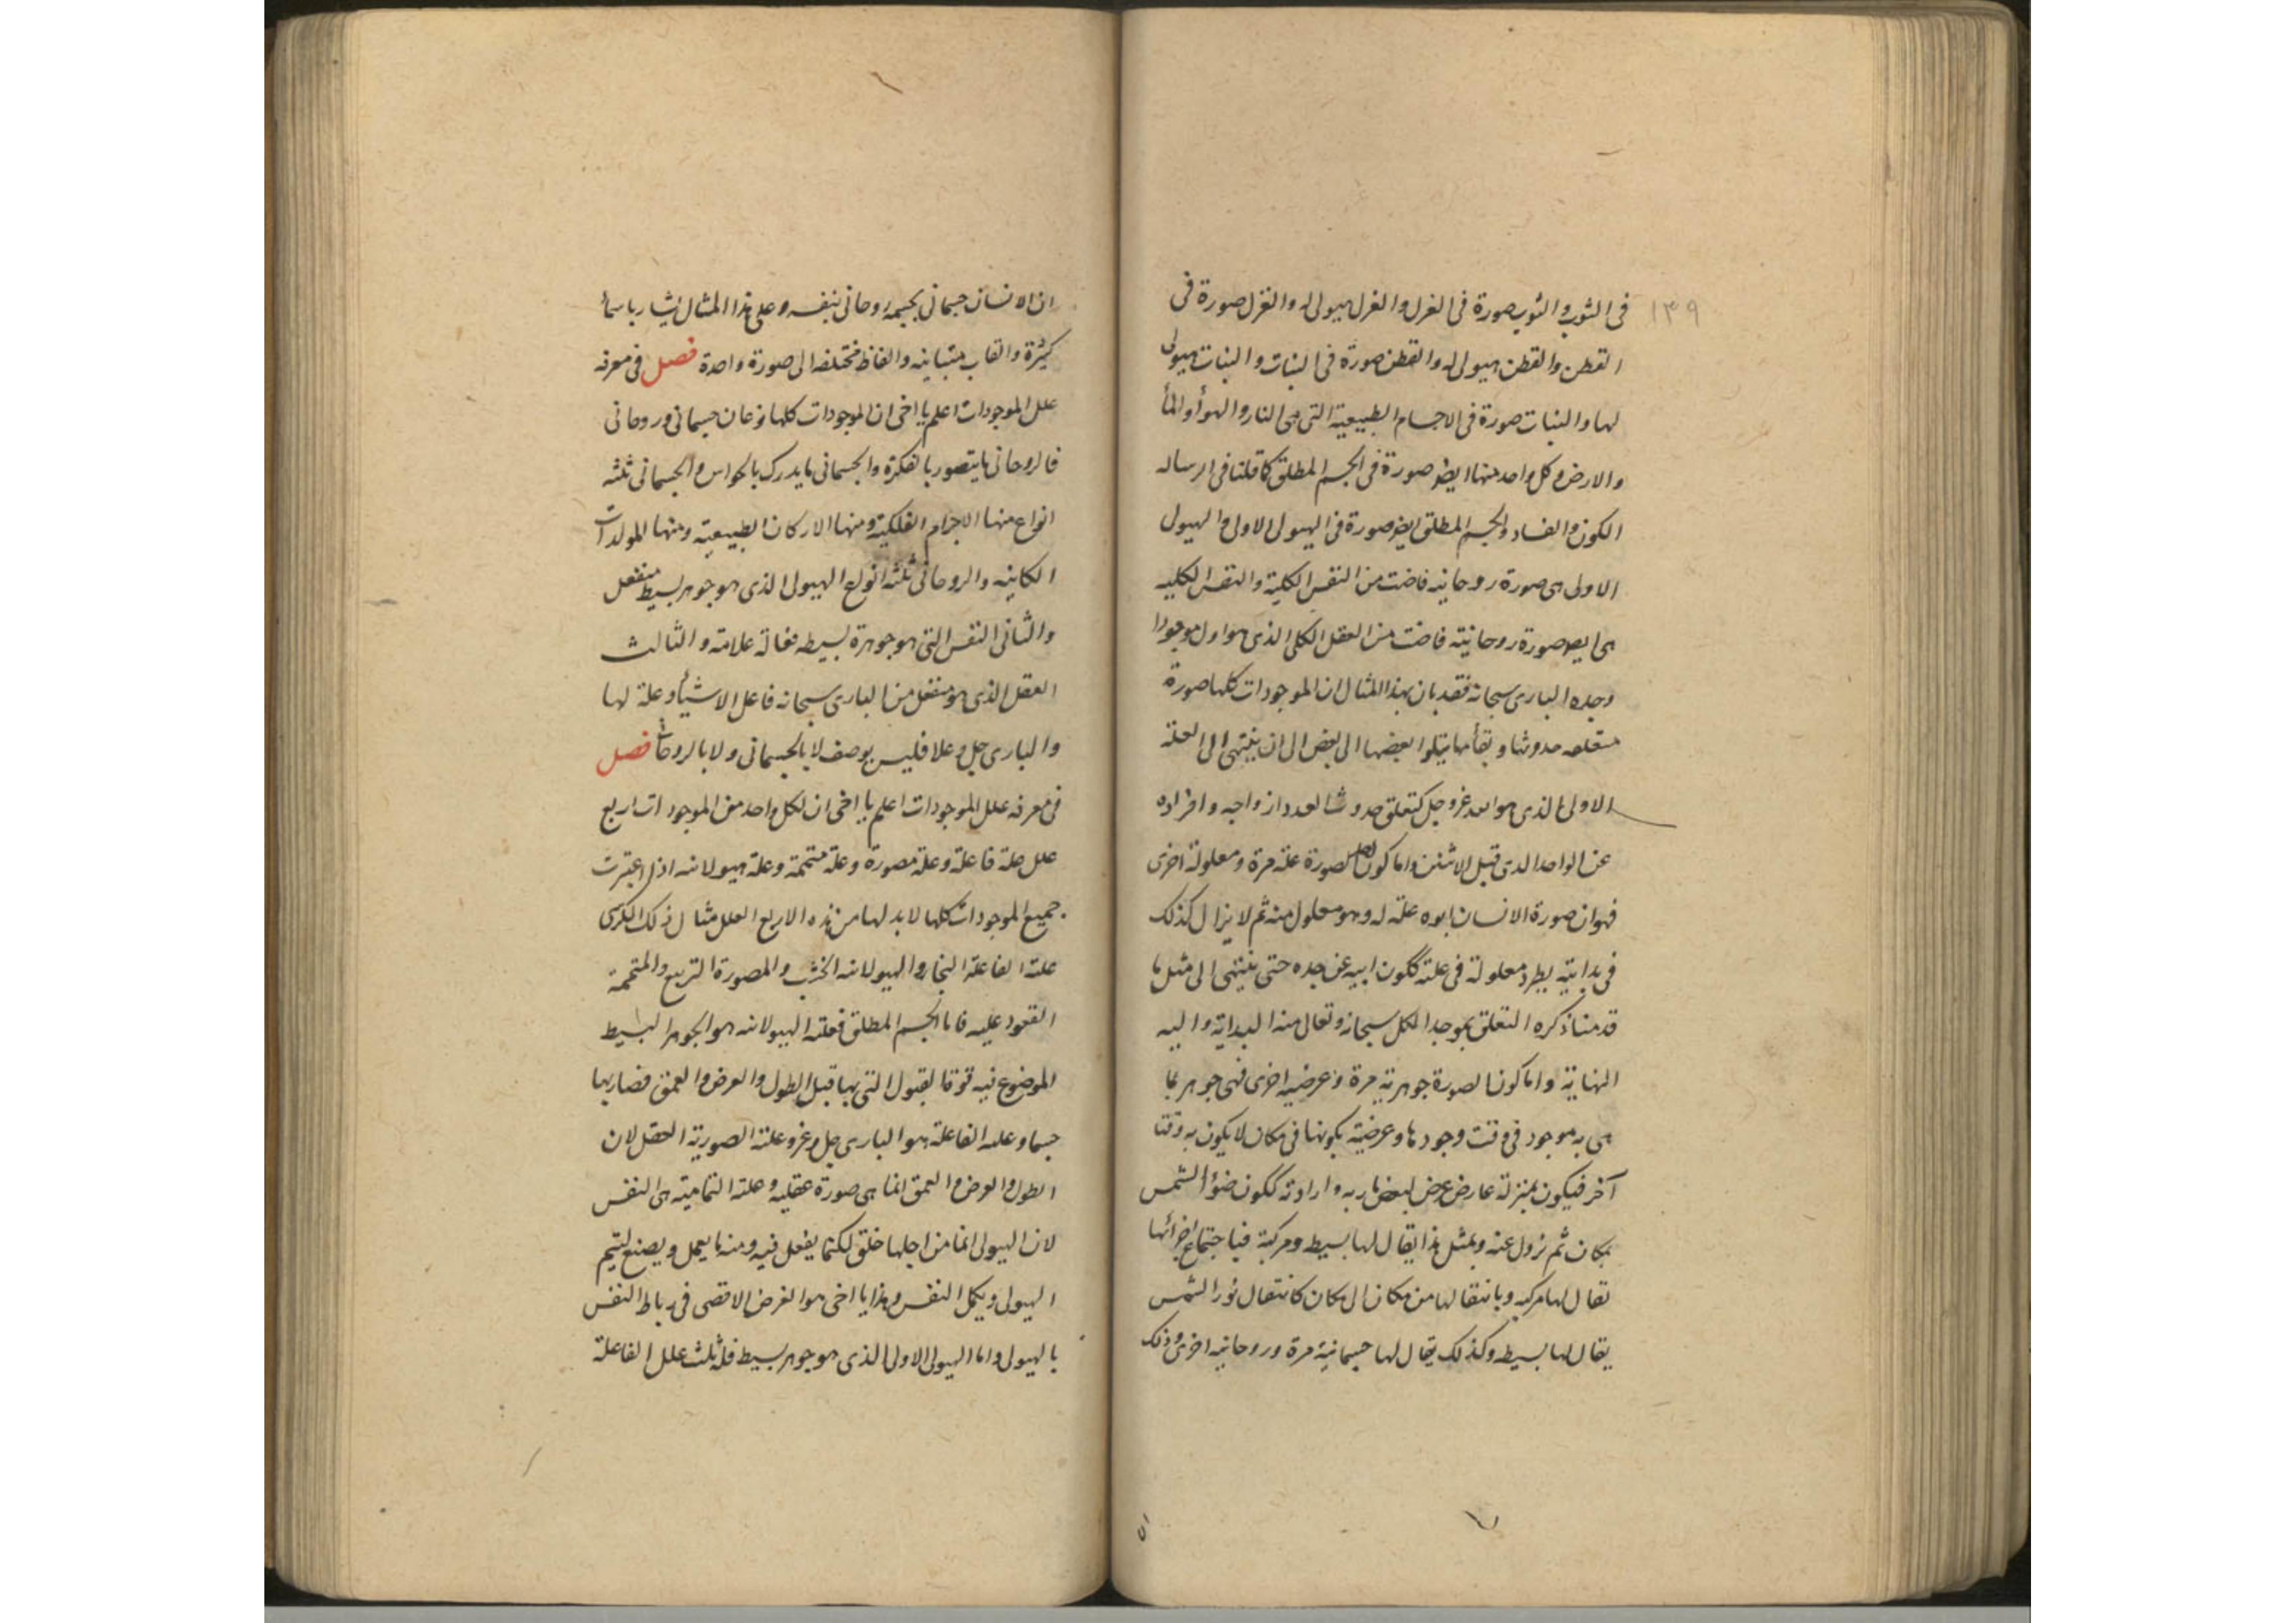 ١٣٩
فى الثوب والثوب صورة فى الغزل والغزل هيولى له والغزل صورة فى
القطن والقطن هيولى له والقطن صورة فى النبات والنبات هيولى
لها والنبات صورة فى الاجسام الطبيعية التى هى النار والهوأ والمأ
والارض وكل واحد منها ايضا صورة فى الجسم المطلق كما قلنا فى الرساله
الكون والفساد والجسم المطلق ايضا صورة فى الهيولى الاولى والهيولى
الاولى هى صورة روحانيه فاضت من النفس الكلية والنفس الكليه
هى ايضا صورة روحانيته فاضت من العقل الكلى الذى هو اول موجود
وجده البارى سبحانه فقد بان بهذا المثال ان الموجودات كلها صورة
متعلقه حدوثها وبقأها يتلوا بعضها الى بعض الى ان ينتهى الى العلة
الاولى الذى هو الله عز وجل كتعلق حدوث العدد ازواجه وافراده
عن الواحد الذى قبل الاثنين واما كون الصورة علة مرة ومعلولة اخرى
فهو ان صورة الانسان ابوه علة له وهو معلول منه ثم لا يزال كذلك
فى بدايته يطرد معلولة فى علته ككون ابيه عن جده حتى ينتهى الى مثل ما
قدمنا ذكره التعلق بموجد الكل سبحانه وتعالى منه البداية واليه
النهاية واما كون الصورة جوهرية مرة وعرضيه اخرى فهى جوهر بما
هى به موجود فى وقت وجودها وعرضية بكونها فى مكان لا يكون به وقتا
آخر فيكون بمنزلة عارض عرض لبعض ما ربه وارادته ككون ضوأ الشمس
بمكان ثم تزول عنه وبمثل هذا يقال لها بسيط ومركبة فباجتماع اجزائها
يقال لها مركبه وبانتقالها من مكان الى مكان كانتقال نور الشمس
يقال لها بسيطه وكذلك يقال لها جسمانية مرة وروحانيه اخرى وذلك
ان
ان الانسان جسمانى بجسمه روحانى بنفسه وعلى هذا المثال يشار باسمأ
كثيرة والقاب متباينه والفاظ مختلفه الى صورة واحدة فصل فى معرفه
علل الموجودات اعلم يا اخى ان الموجودات كلها نوعان جسمانى وروحانى
فالروحانى ما يتصور بالفكرة والجسمانى ما يدرك بالحواس والجسمانى ثلثه
انواع منها الاجرام الفلكية ومنها الاركان الطبيعيه ومنها المولدات
الكاينه والروحانى ثلثه انواع الهيولى الذى هو جوهر بسيط منفعل
والثانى النفس التى هو جوهرة بسيطه فعالة علامه والثالث
العقل الذى هو منفعل من البارى سبحانه فاعل الاشيأ وعلة لها
والبارى جل وعلا فليس يوصف لا بالجسمانى ولا بالروحانى فصل
فى معرفه علل الموجودات اعلم يا اخى ان لكل واحد من الموجودات اربع
علل علة فاعلة وعلة مصورة وعلة متممة وعلة هيولانيه اذا اعتبرت
جميع الموجودات كلها لا بد لها من هذه الاربع العلل مثال ذلك الكرسى
علته الفاعلة النجار والهيولانيه الخشب والمصورة التربيع والمتممة
القعود عليه فاما الجسم المطلق فعلته الهيولانيه هو الجوهر البسيط
الموضوع فيه قوة القبول التى بها قبل الطول والعرض والعمق فصار بها
جسما وعلته الفاعلة هو البارى جل وعز وعلته الصورية العقل لان
الطول والعرض والعمق انما هى صورة عقليه وعلته التمامية هى النفس
لان الهيولى انما من اجلها خلق لكيما يفعل فيه ومنه ما يعمل ويصنع ليتم
الهيولى ويكمل النفس وهذا يا اخى هو الغرض الاقصى فى رباط النفس
بالهيولى واما الهيولى الاولى الذى هو جوهر بسيط فله ثلث علل الفاعلة